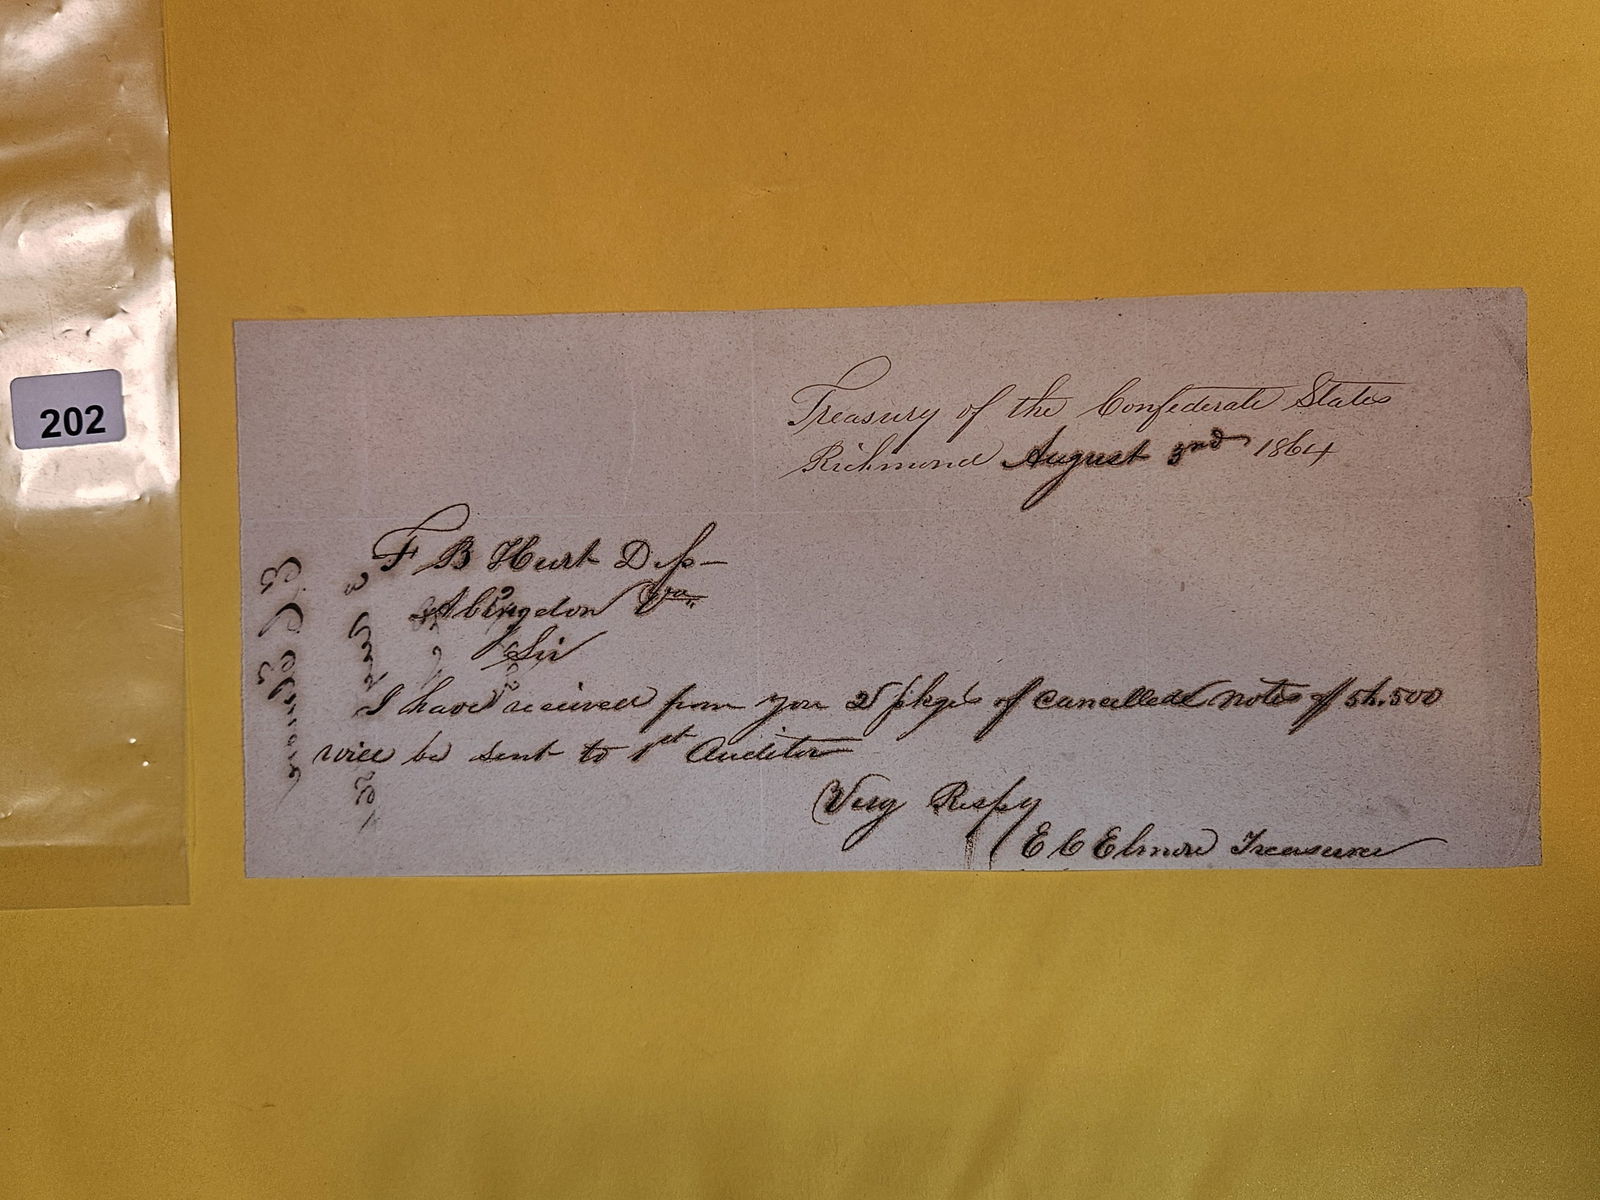 202
Treasury of the Confederate States
Richmond August 3rd 1864
F B Hurt Dep
Abingdon Va
Sir
I have received from you 2 pkgs of Cancelled notes of 54.500
will be sent to 1st Auditor
Very Respy
E C Elmore Treasurer